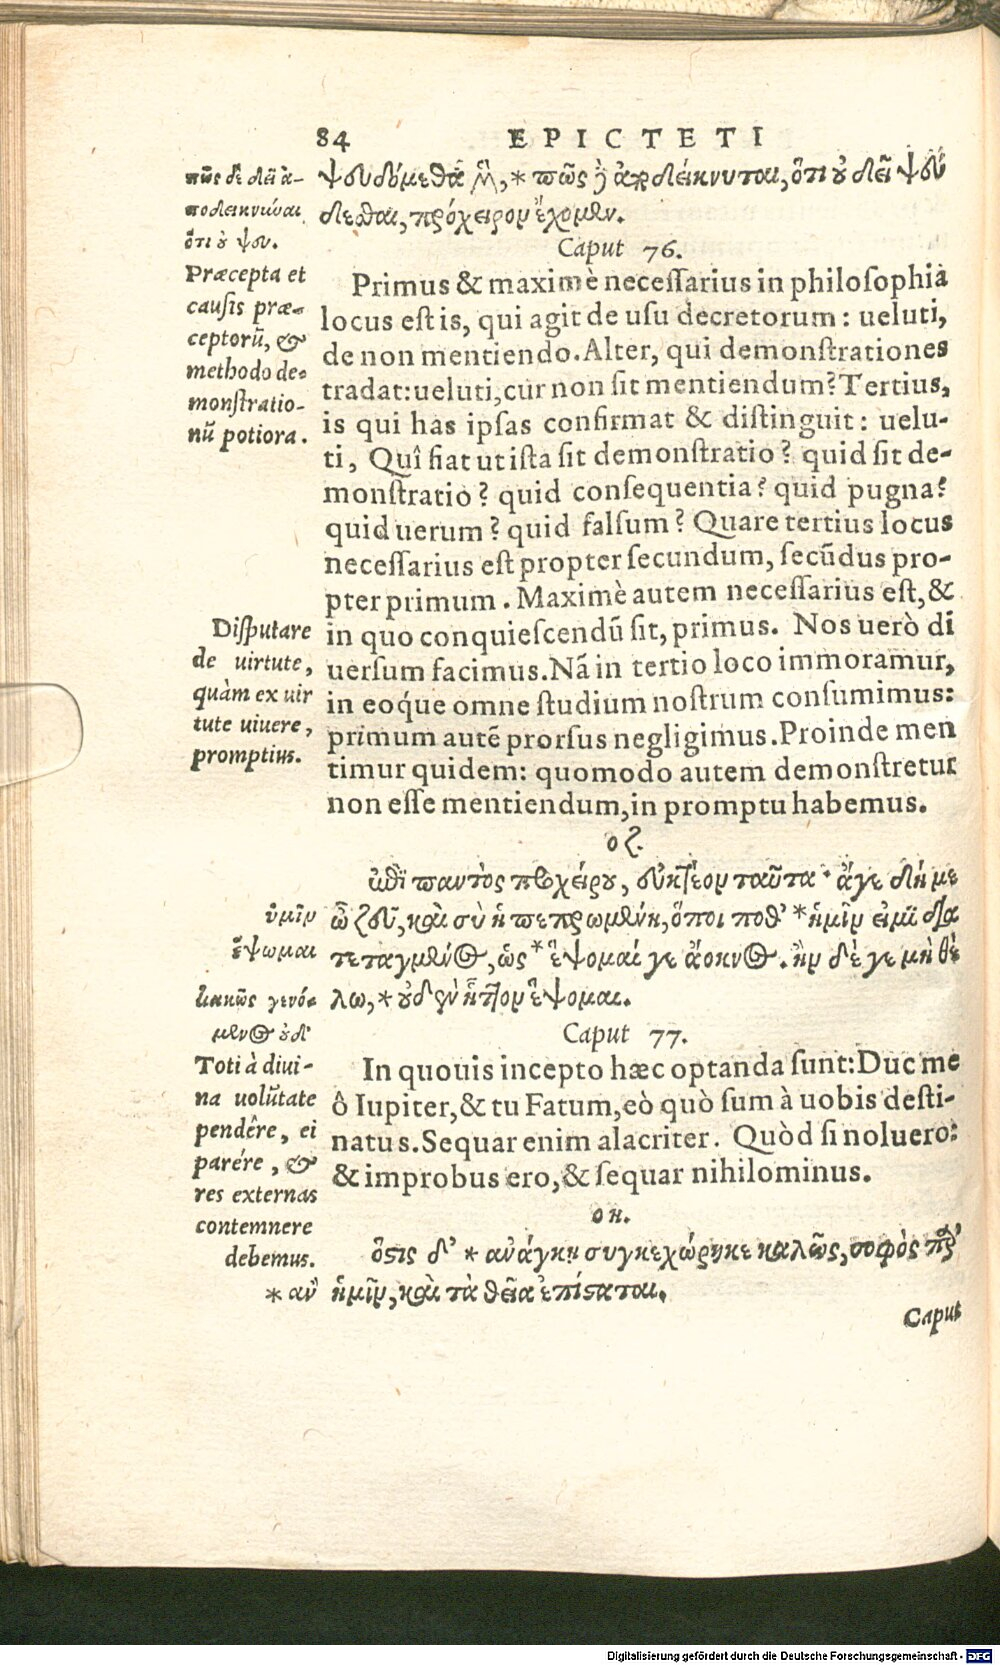 84 EPICTETI
πῶς δὲ δεῖ ἀ-
ποδεικνύναι
ὅτι οὐ ψευ.
ψευδόμεθα μὲν, * πῶς δὲ ἀποδείκνυται, ὅτι οὐ δεῖ ψεύ
δεσθαι, πρόχειρον ἔχομεν.
Caput 76.
Præcepta et
causis præ-
ceptorũ, &
methodo de-
monstratio-
nũ potiora.
Primus & maximè necessarius in philosophia
locus est is, qui agit de usu decretorum: ueluti,
de non mentiendo. Alter, qui demonstrationes
tradat: ueluti, cur non sit mentiendum? Tertius,
is qui has ipsas confirmat & distinguit: uelu-
ti, Quî fiat ut ista sit demonstratio? quid sit de-
monstratio? quid consequentia? quid pugna?
quid uerum? quid falsum? Quare tertius locus
necessarius est propter secundum, secũdus pro-
pter primum. Maximè autem necessarius est, &
in quo conquiescendũ sit, primus. Nos uerò di
uersum facimus. Nã in tertio loco immoramur,
in eoq́ue omne studium nostrum consumimus:
primum autẽ prorsus negligimus. Proinde men
timur quidem: quomodo autem demonstretur
non esse mentiendum, in promptu habemus.
Disputare
de uirtute,
quàm ex uir
tute uiuere,
promptius.
οζ.
ἐπὶ παντὸς προχείρου, εὐκτέον ταῦτα· ἄγε δή με
ὦ ζεῦ, καὶ σὺ ἡ πεπρωμένη, ὅποι ποθ' * ἡμῖν εἰμὶ δια
τεταγμένος, ὡς * ἕψομαί γε ἄοκνος. ἢν δέ γε μὴ θέ
λω, * οὐδὲν ἧττον ἕψομαι.
ὑμῖν
ἕψωμαι
κακῶς γενό-
μενος οὐδ'
Caput 77.
Toti à diui-
na uolũtate
pendêre, ei
parére, &
res externas
contemnere
debemus.
In quouis incepto hæc optanda sunt: Duc me
ô Iupiter, & tu Fatum, eò quò sum à uobis desti-
natus. Sequar enim alacriter. Quòd si noluero:
& improbus ero, & sequar nihilominus.
οη.
ὅστις δ' * ἀνάγκῃ συγκεχώρηκε καλῶς, σοφὸς παρ'
* ἂν ἡμῖν, καὶ τὰ θεῖα ἐπίσταται.
Caput
Digitalisierung gefördert durch die Deutsche Forschungsgemeinschaft - DFG